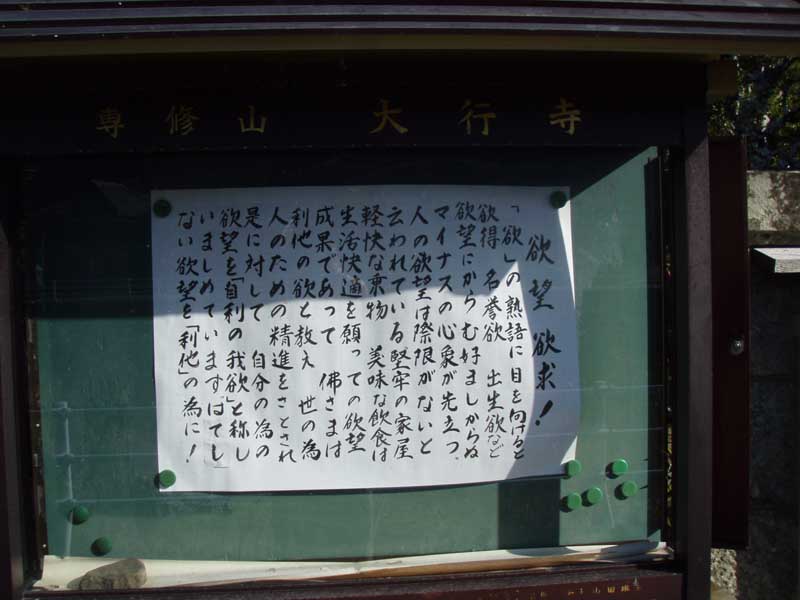 専修山 大行寺
欲望 欲求!
「欲」の熟語に目を向けると
欲得 名誉欲 出生欲など
欲望にからむ好ましからぬ
マイナスの心象が先立つ、
人の欲望は際限がないと
云われている 堅牢の家屋
軽快な乗物 美味な飲食は
生活快適を願っての欲望
成果であって 佛さまは
利他の欲と教え 世の為
人のための精進をさとされ
是に対して 自分の為の
欲望を「自利の我欲」と称し
いましめています。はてし
ない欲望を「利他」の為に!